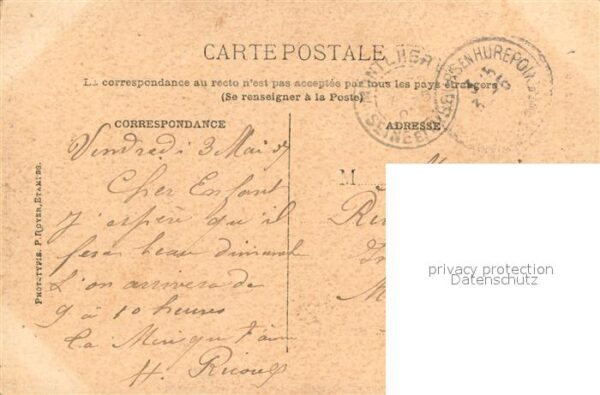 CARTE POSTALE
La correspondance au recto n'est pas acceptée par tous les pays étrangers
(Se renseigner à la Poste)
CORRESPONDANCE
ADRESSE
Vendredi 3 Mai
Cher Enfant
J'espère qu'il
fera beau dimanche
L'on arrivera de
9 à 10 heures
ta Mère qui t'aime
H.
M
PHOTOTYPIE. P. ROYER, ETAMPES.
MONTLHERY
SEINE
privacy protection
Datenschutz